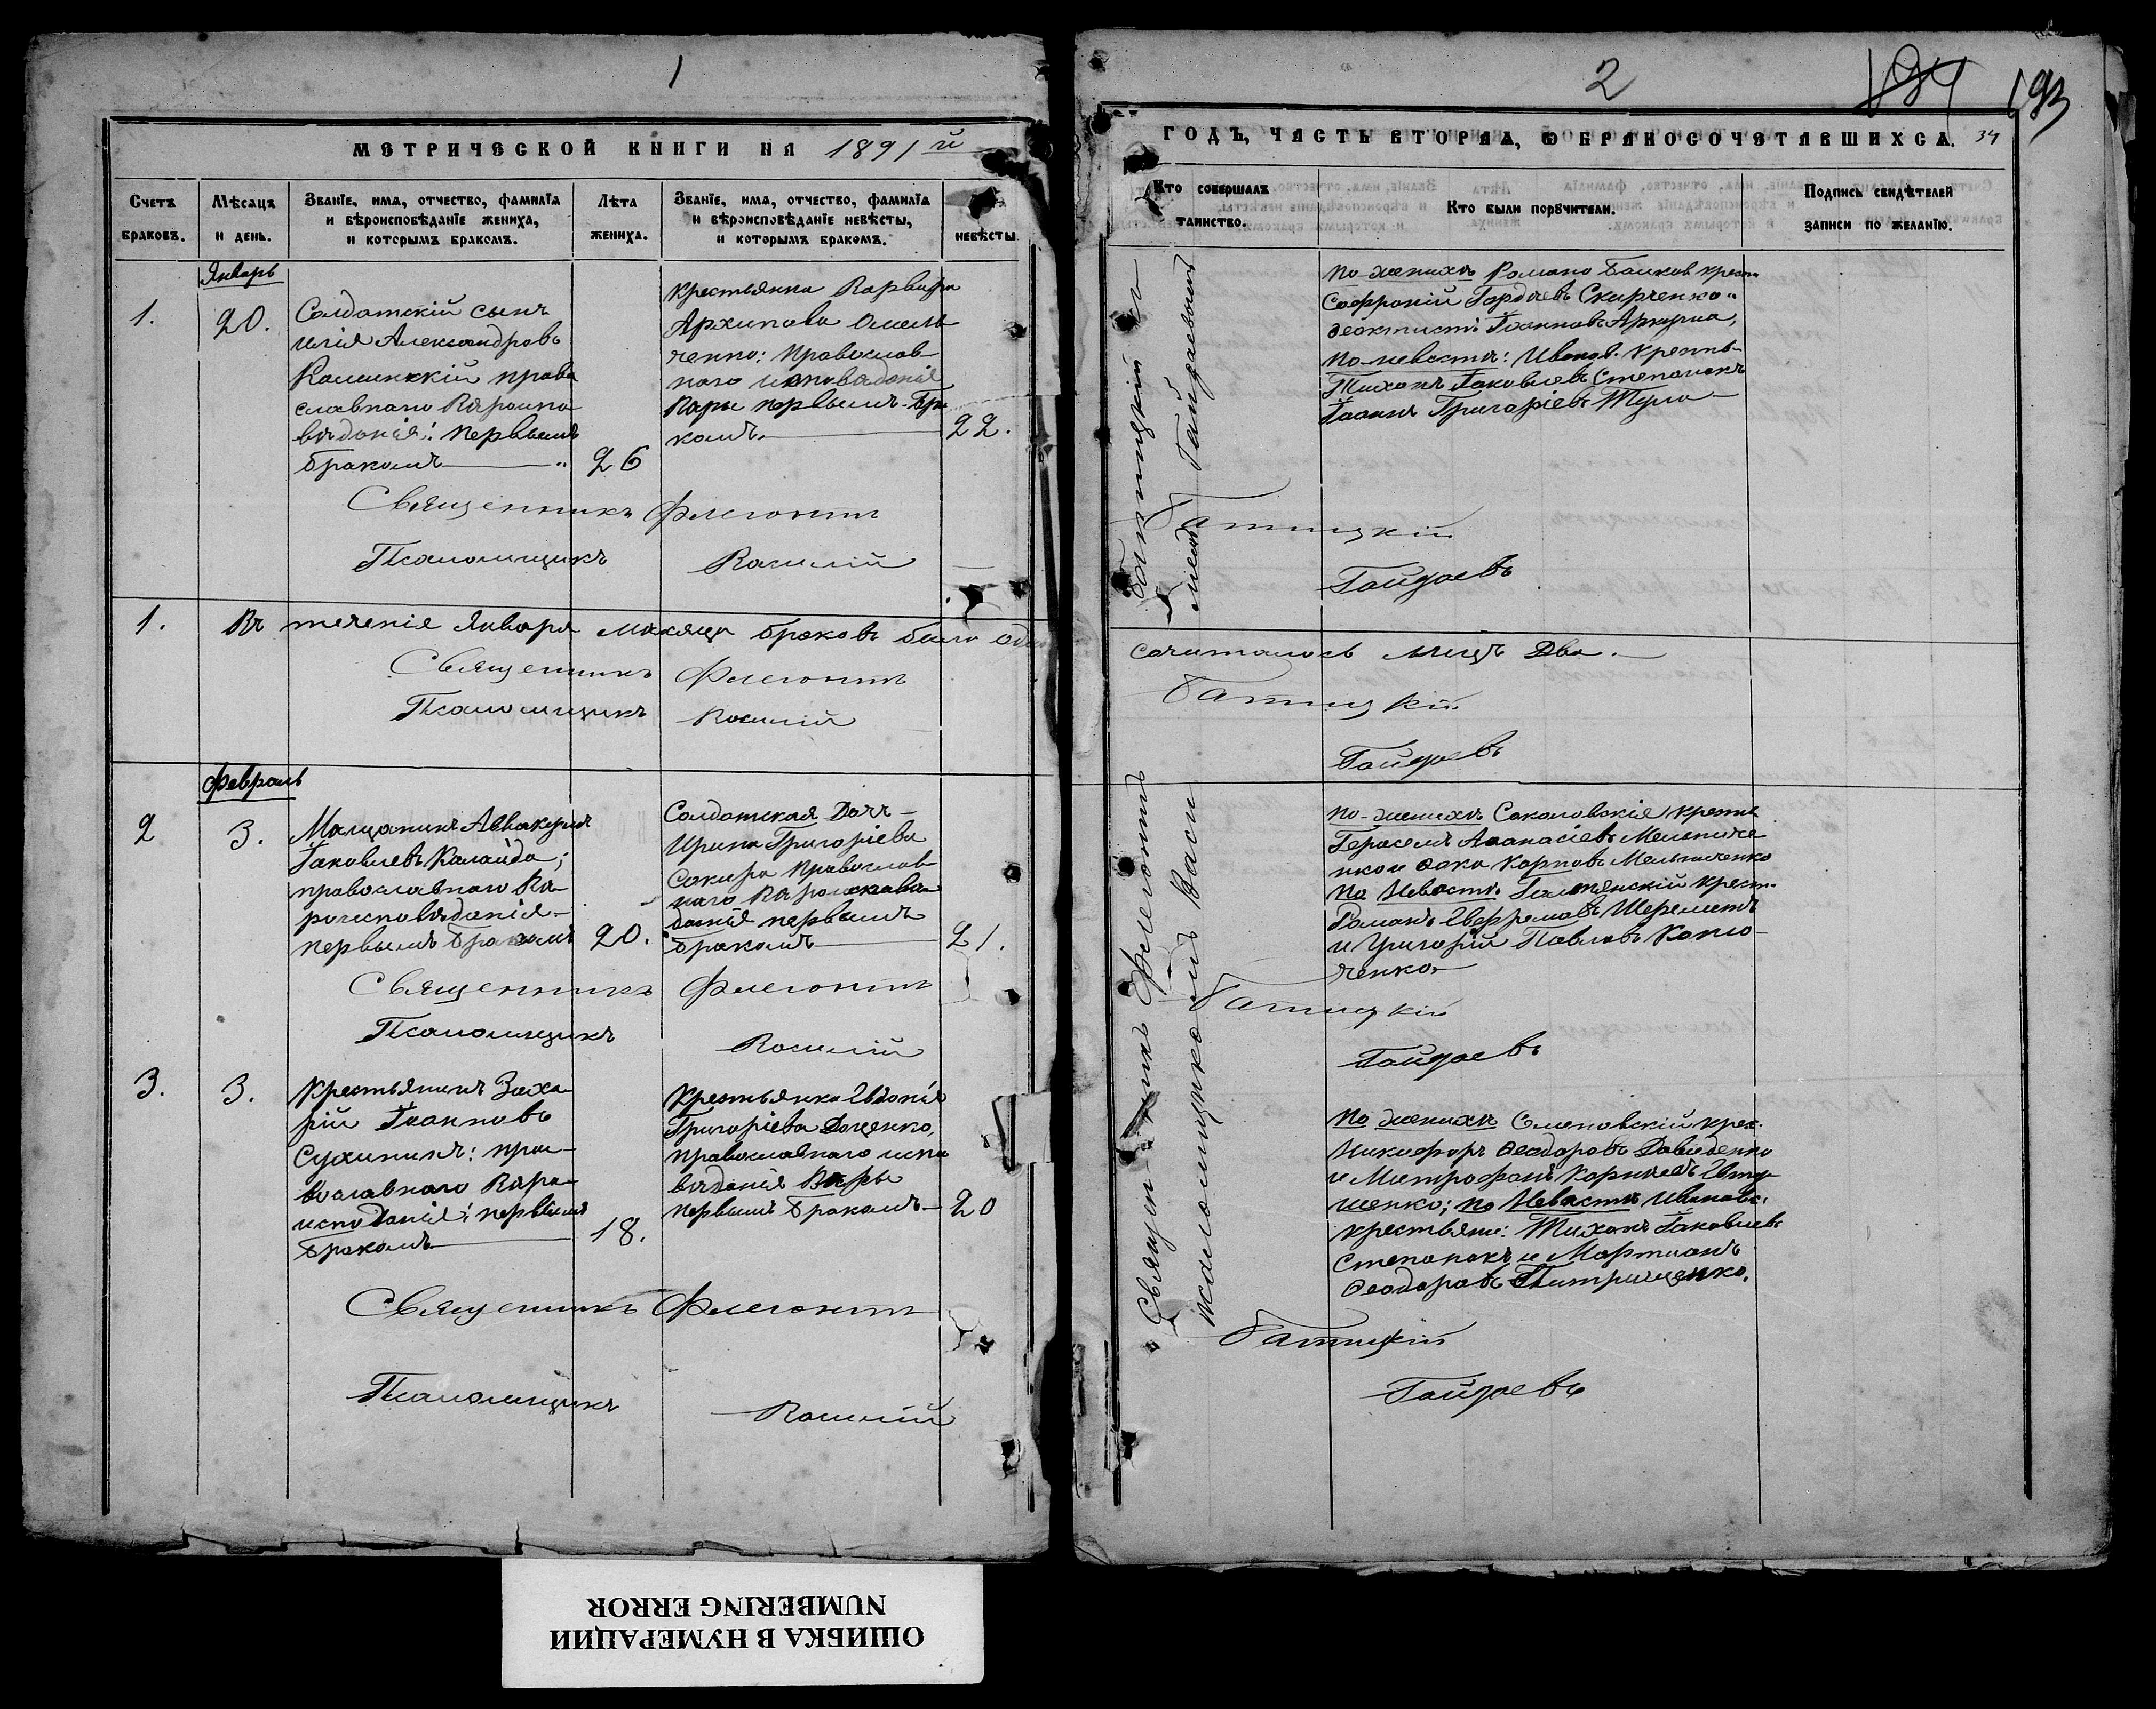 1
МЕТРИЧЕСКОЙ КНИГИ НА 1891й
Счетъ браковъ.
Мѣсяцъ и день.
Званіе, имя, отчество, фамилія
и вѣроисповѣданіе жениха,
и которымъ бракомъ.
Лѣта жениха.
Званіе, имя, отчество, фамилія
и вѣроисповѣданіе невѣсты,
и которымъ бракомъ.
невѣсты.
Январь
1.
20.
Солдатскій сынъ
Илія Александровъ
Калинскій право
славнаго Вѣроиспо
вѣданія: первымъ
бракомъ
26
Крестьянка Варвара
Архипова Омель
ченко: Православ
наго исповѣданія
Вѣры первымъ бра
комъ.
22.
Священникъ Флегонтъ
Псаломщикъ Василій
1. Въ теченіе Января мѣсяца браковъ было
Священникъ Флегонтъ
Псаломщикъ Василій
Февраль
2
3.
Мѣщанинъ Аввакумъ
Іаковлевъ Калайда;
православнаго Вѣ
роисповѣданія
первымъ бракомъ
20.
Солдатская Дочь
Ирина Григоріева
Сокира Православ
наго
данія первымъ
бракомъ
21.
Священникъ Флегонтъ
Псаломщикъ Василій
3.
3.
Крестьянинъ Заха
рій Іоанновъ
Сухининъ: пра
вославнаго Вѣро
первымъ
бракомъ
18.
Крестьянка Евдокія
Григоріева Доценко,
православнаго испо
вѣданія Вѣры
первымъ бракомъ
20
Священникъ Флегонтъ
Псаломщикъ
Василій
2
184 193
ГОДЪ, ЧАСТЬ ВТОРАЯ, О БРАКОСОЧЕТАВШИХСЯ. 34
Кто совершалъ
таинство.
Кто были поручители.
Подпись свидѣтелей
записи по желанію.
Батицкій
Гайдаевымъ
По женихѣ Романо Балков крест.
Софроній Гордѣевъ Скирченко
Феоктистъ Іоанновъ
По невѣстѣ: Иванов. крест
Тихонъ Іаковлевъ Степанокъ
Іоаннъ Григоріевъ
Батицкій
Гайдаевъ
сочиталось лицъ Два.
Батицкій
Гайдаевъ
Флегонтъ
Псаломщикомъ Васи
По женихѣ Соколовскія крест
Герасимъ Аѳанасіевъ Мельниче
нко и Карповъ Мельниченко
По Невѣстѣ крест.
Романъ Евфремовъ Шереметъ
и Григорій Павловъ
ченко
Батицкій
Гайдаевъ
По женихѣ Семеновскій крес.
Никифоръ Ѳеодоровъ Давиденко
и Митрофанъ Евту
шенко; по Невѣстѣ Ивановс.
крестьяне: Тихонъ Іаковлевъ
Степанокъ и Мартинъ
Ѳеодоровъ
Батицкій
Гайдаевъ
ОШИБКА В НУМЕРАЦИИ
NUMBERING ERROR